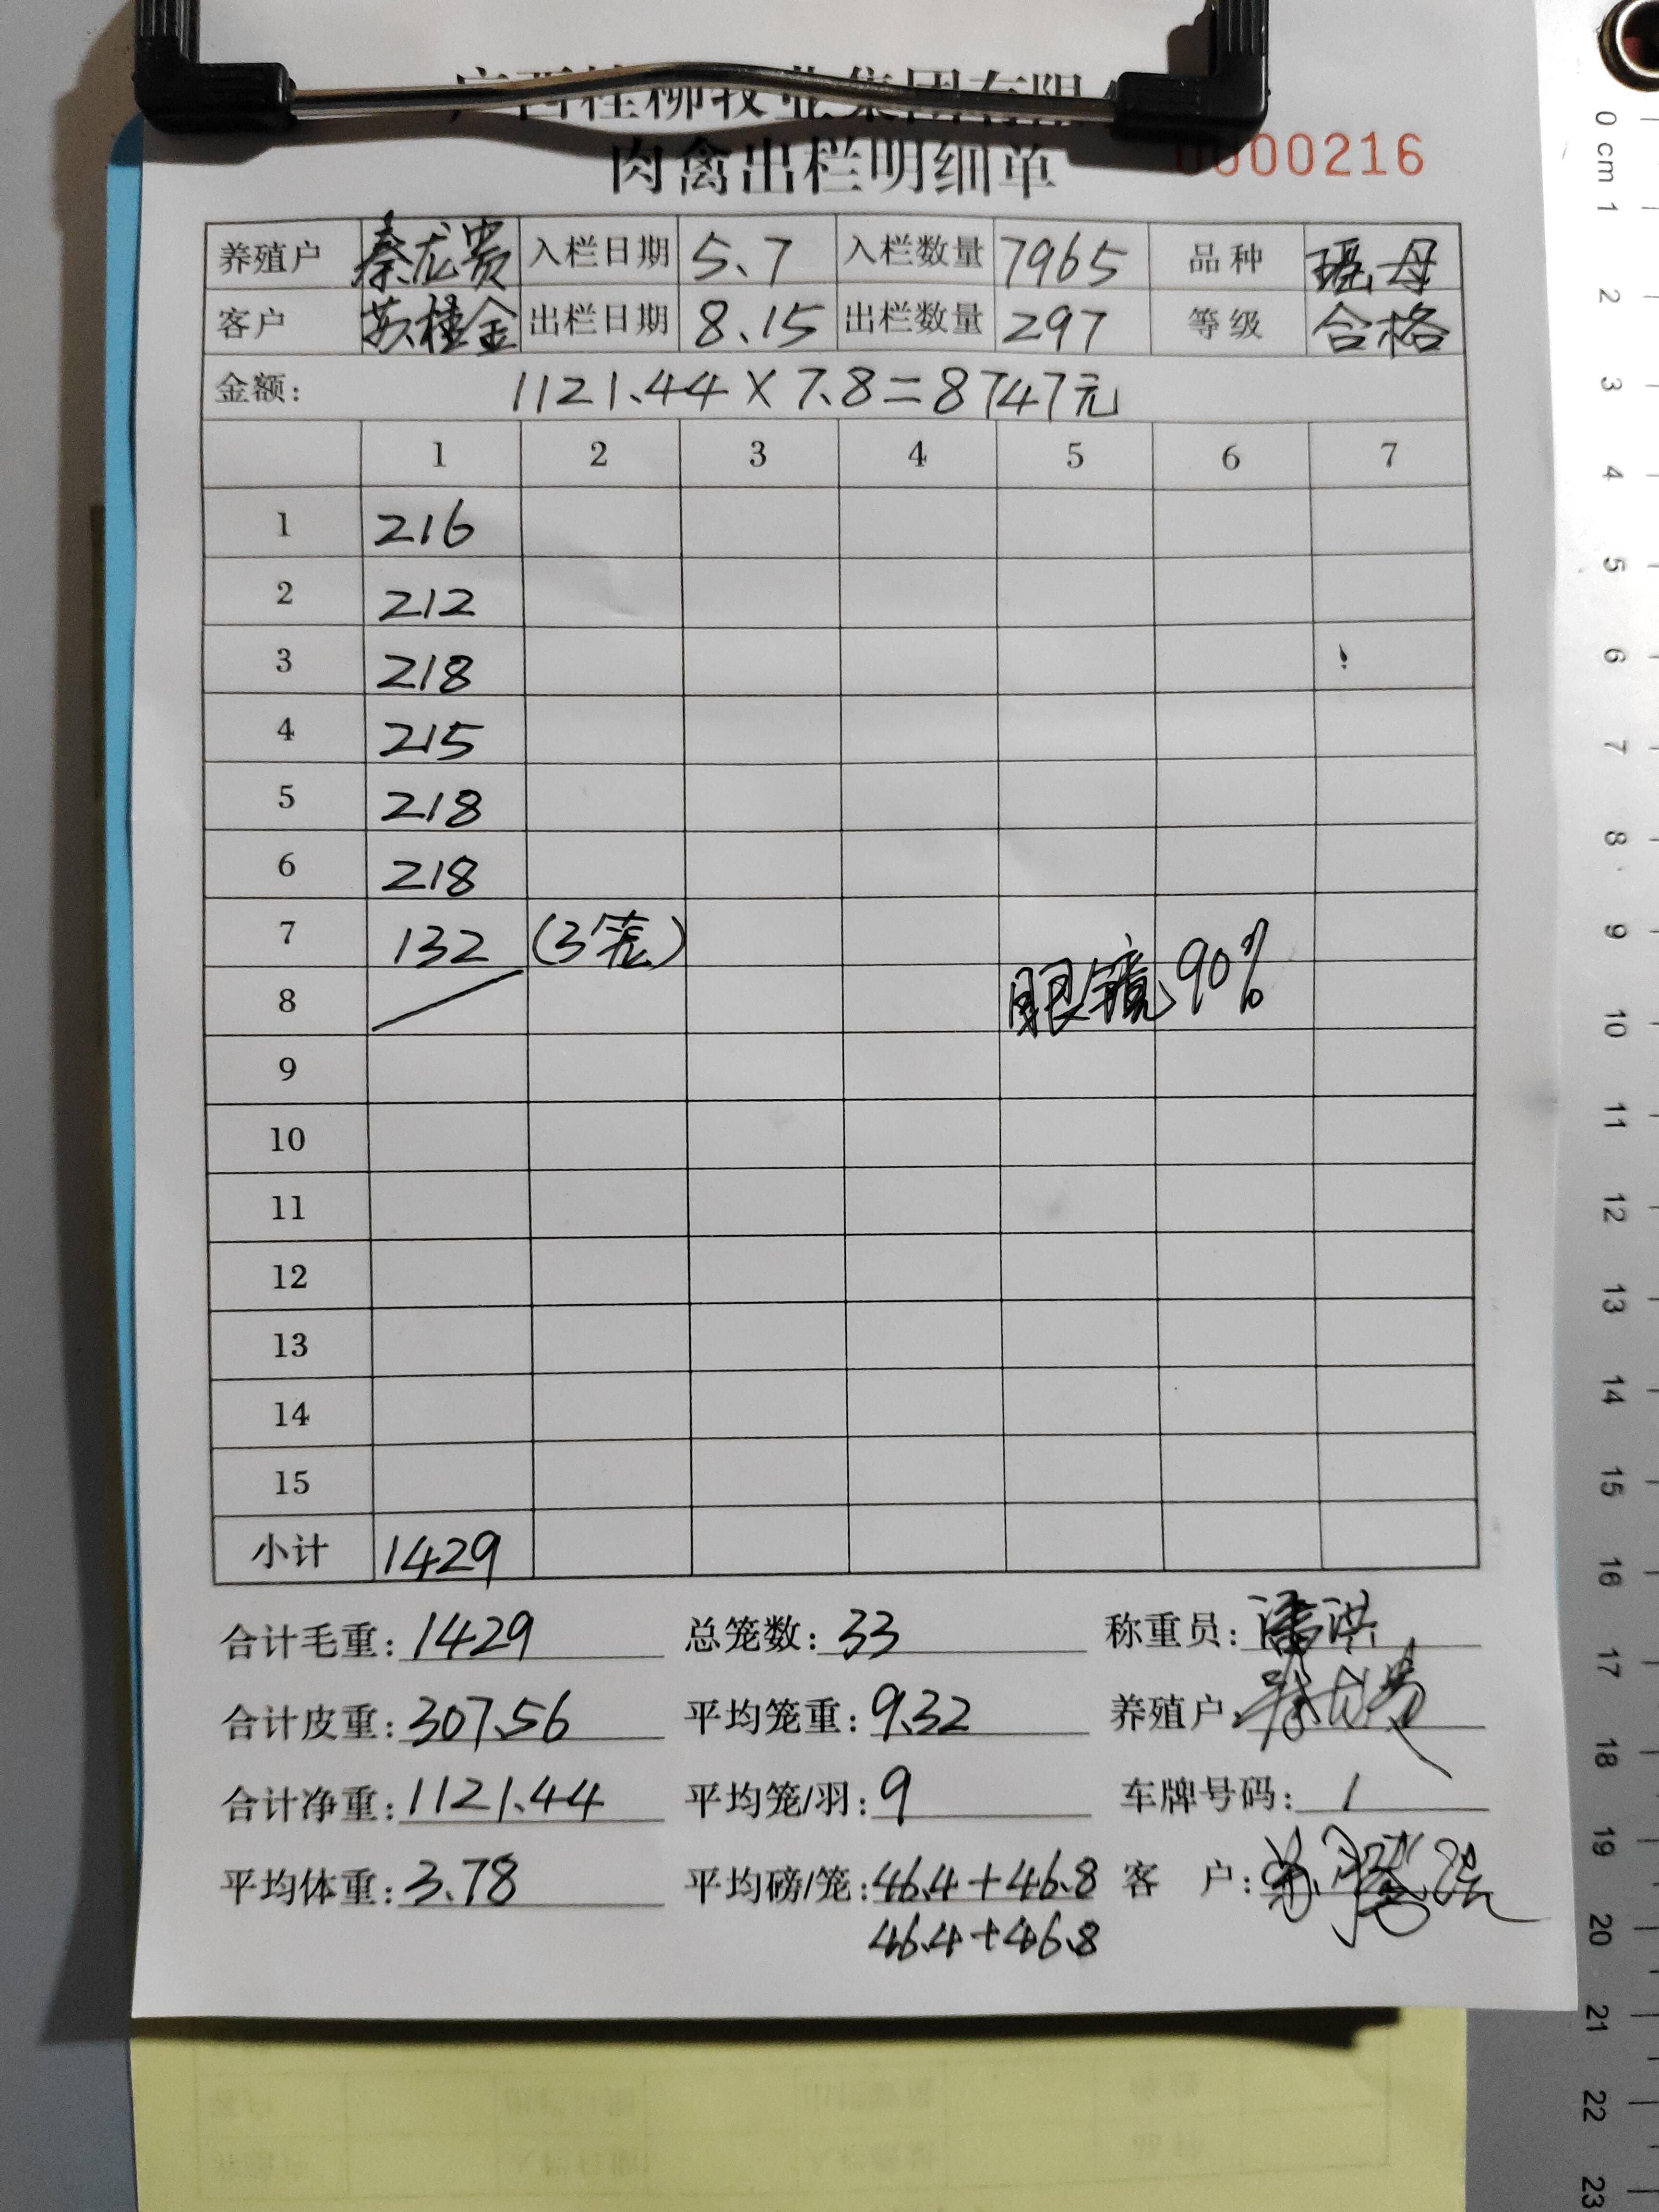 广西桂柳牧业集团有限
肉禽出栏明细单
0000216
养殖户 秦龙贵 入栏日期 5.7 入栏数量 7965 品种 瑶母
客户 苏桂金 出栏日期 8.15 出栏数量 297 等级 合格
金额: 1121.44×7.8=8747元
1 2 3 4 5 6 7
1 216
2 212
3 218
4 215
5 218
6 218
7 132 (3笼)
8 眼镜90%
9
10
11
12
13
14
15
小计 1429
合计毛重: 1429 总笼数: 33 称重员: 潘洪
合计皮重: 307.56 平均笼重: 9.32 养殖户: 秦龙贵
合计净重: 1121.44 平均笼/羽: 9 车牌号码: 1
平均体重: 3.78 平均磅/笼: 46.4+46.8 客户:
46.4+46.8
0 cm 1 2 3 4 5 6 7 8 9 10 11 12 13 14 15 16 17 18 19 20 21 22 23